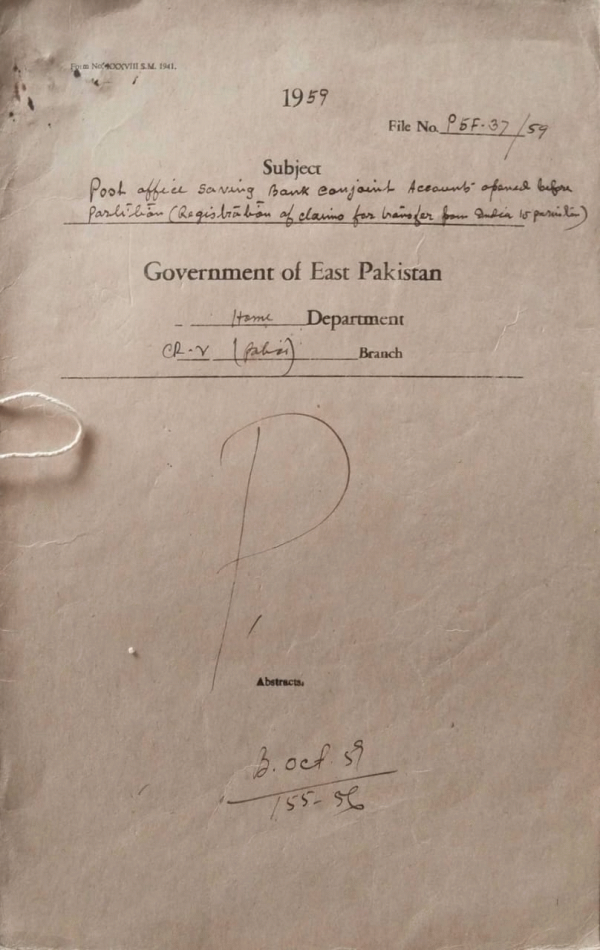 Form No. XXXVIII S.M. 1941.
1959
File No. P5F-37/59
Subject
Post office Saving Bank Conjoint Accounts opened before
Partition (Registration of claims for transfer from India is permitted)
Government of East Pakistan
Home Department
CR-V Branch
P.
Abstracts.
B. Oct 59
155-56